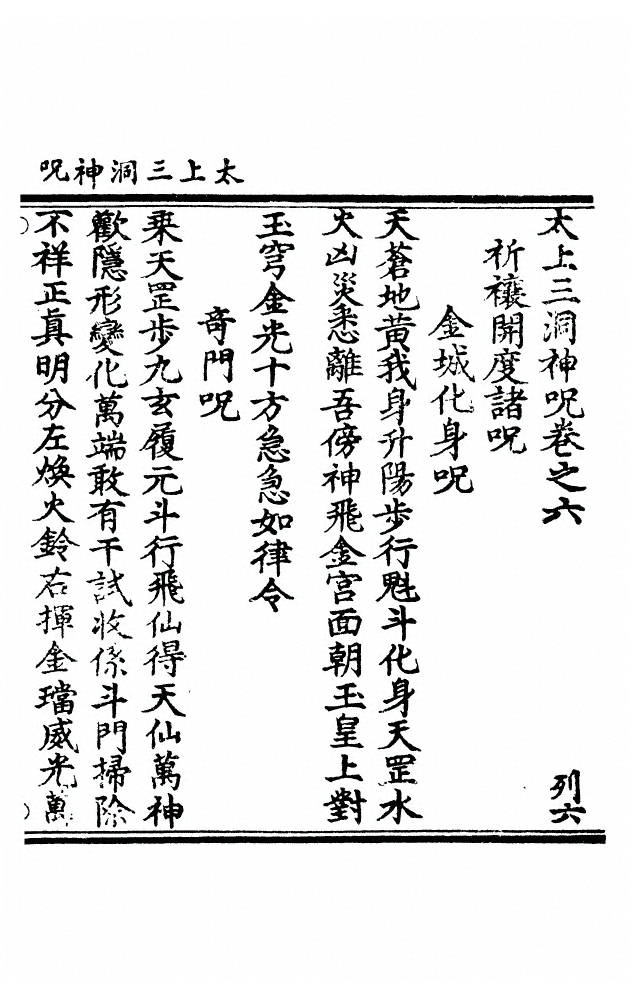 太上三洞神呪
太上三洞神呪卷之六
列六
祈禳開度諸呪
金城化身呪
天蒼地黃我身升陽步行魁斗化身天罡水
火凶災悉離吾傍神飛金宮面朝玉皇上對
玉穹金光十方急急如律令
奇門呪
乘天罡步九玄履元斗行飛仙得天仙萬神
歡隱形變化萬端敢有干試收係斗門掃除
不祥正眞明分左煥火鈴右揮金璫威光萬